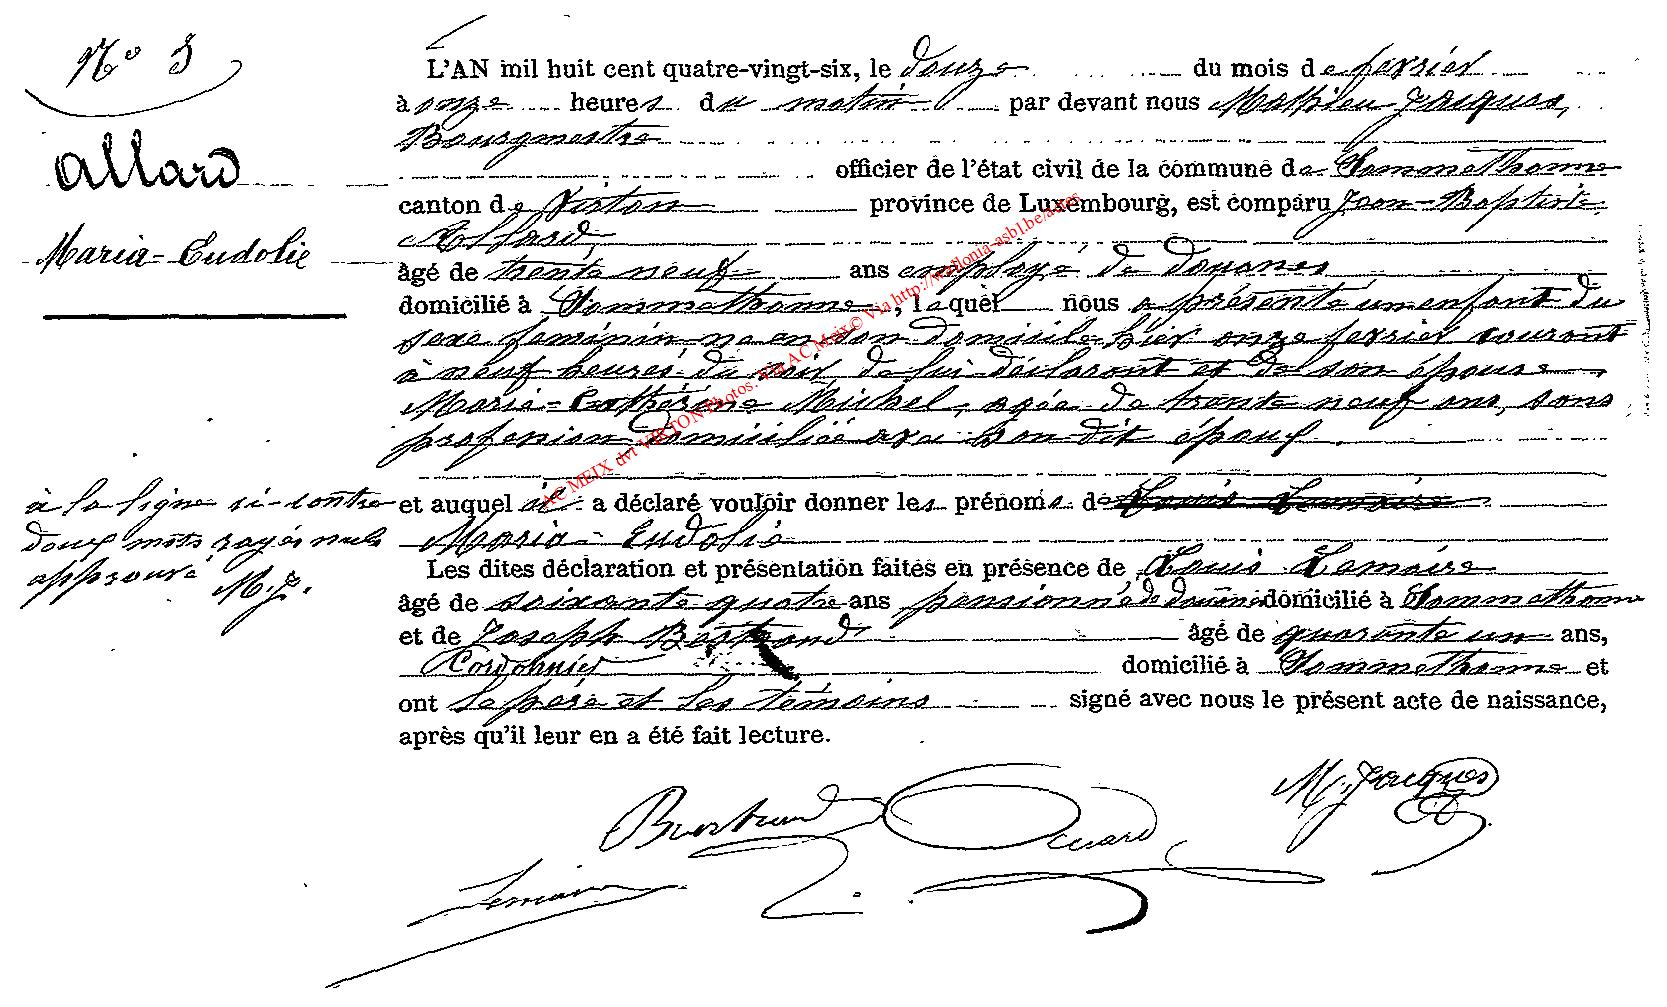 N° 3
Allard
Maria-Eudolie
L'AN mil huit cent quatre-vingt-six, le douze du mois de fevrier
à onze heures du matin par devant nous Mathieu Jacques,
Bourgmestre
officier de l'état civil de la commune de Sommethonne
canton de Virton province de Luxembourg, est comparu Jean-Baptiste
Allard,
âgé de trente neuf ans employé de douanes
domicilié à Sommethonne, lequel nous a présenté un enfant du
sexe feminin né en son domicile hier onze fevrier courant
à neuf heures du soir de lui déclarant et de son épouse
Marie-Cathérine Michel, agée de trente neuf ans, sans
profession domiciliée avec son dit époux.
à la ligne ci-contre
deux mots rayés nuls
approuvé M.J.
et auquel il a déclaré vouloir donner les prénoms de Louis Lemaire
Maria-Eudolie
Les dites déclaration et présentation faites en présence de Louis Lemaire
âgé de soixante quatre ans pensionné de douane domicilié à Sommethonne
et de Joseph Bertrand âgé de quarante un ans,
Cordonnier domicilié à Sommethonne et
ont le père et les témoins signé avec nous le présent acte de naissance,
après qu'il leur en a été fait lecture.
M. Jacques
Bertrand Allard
Lemaire
AC MEIX dvt VIRTON Photos: EC AC Meix© Via http://wallonia-asbl.be/